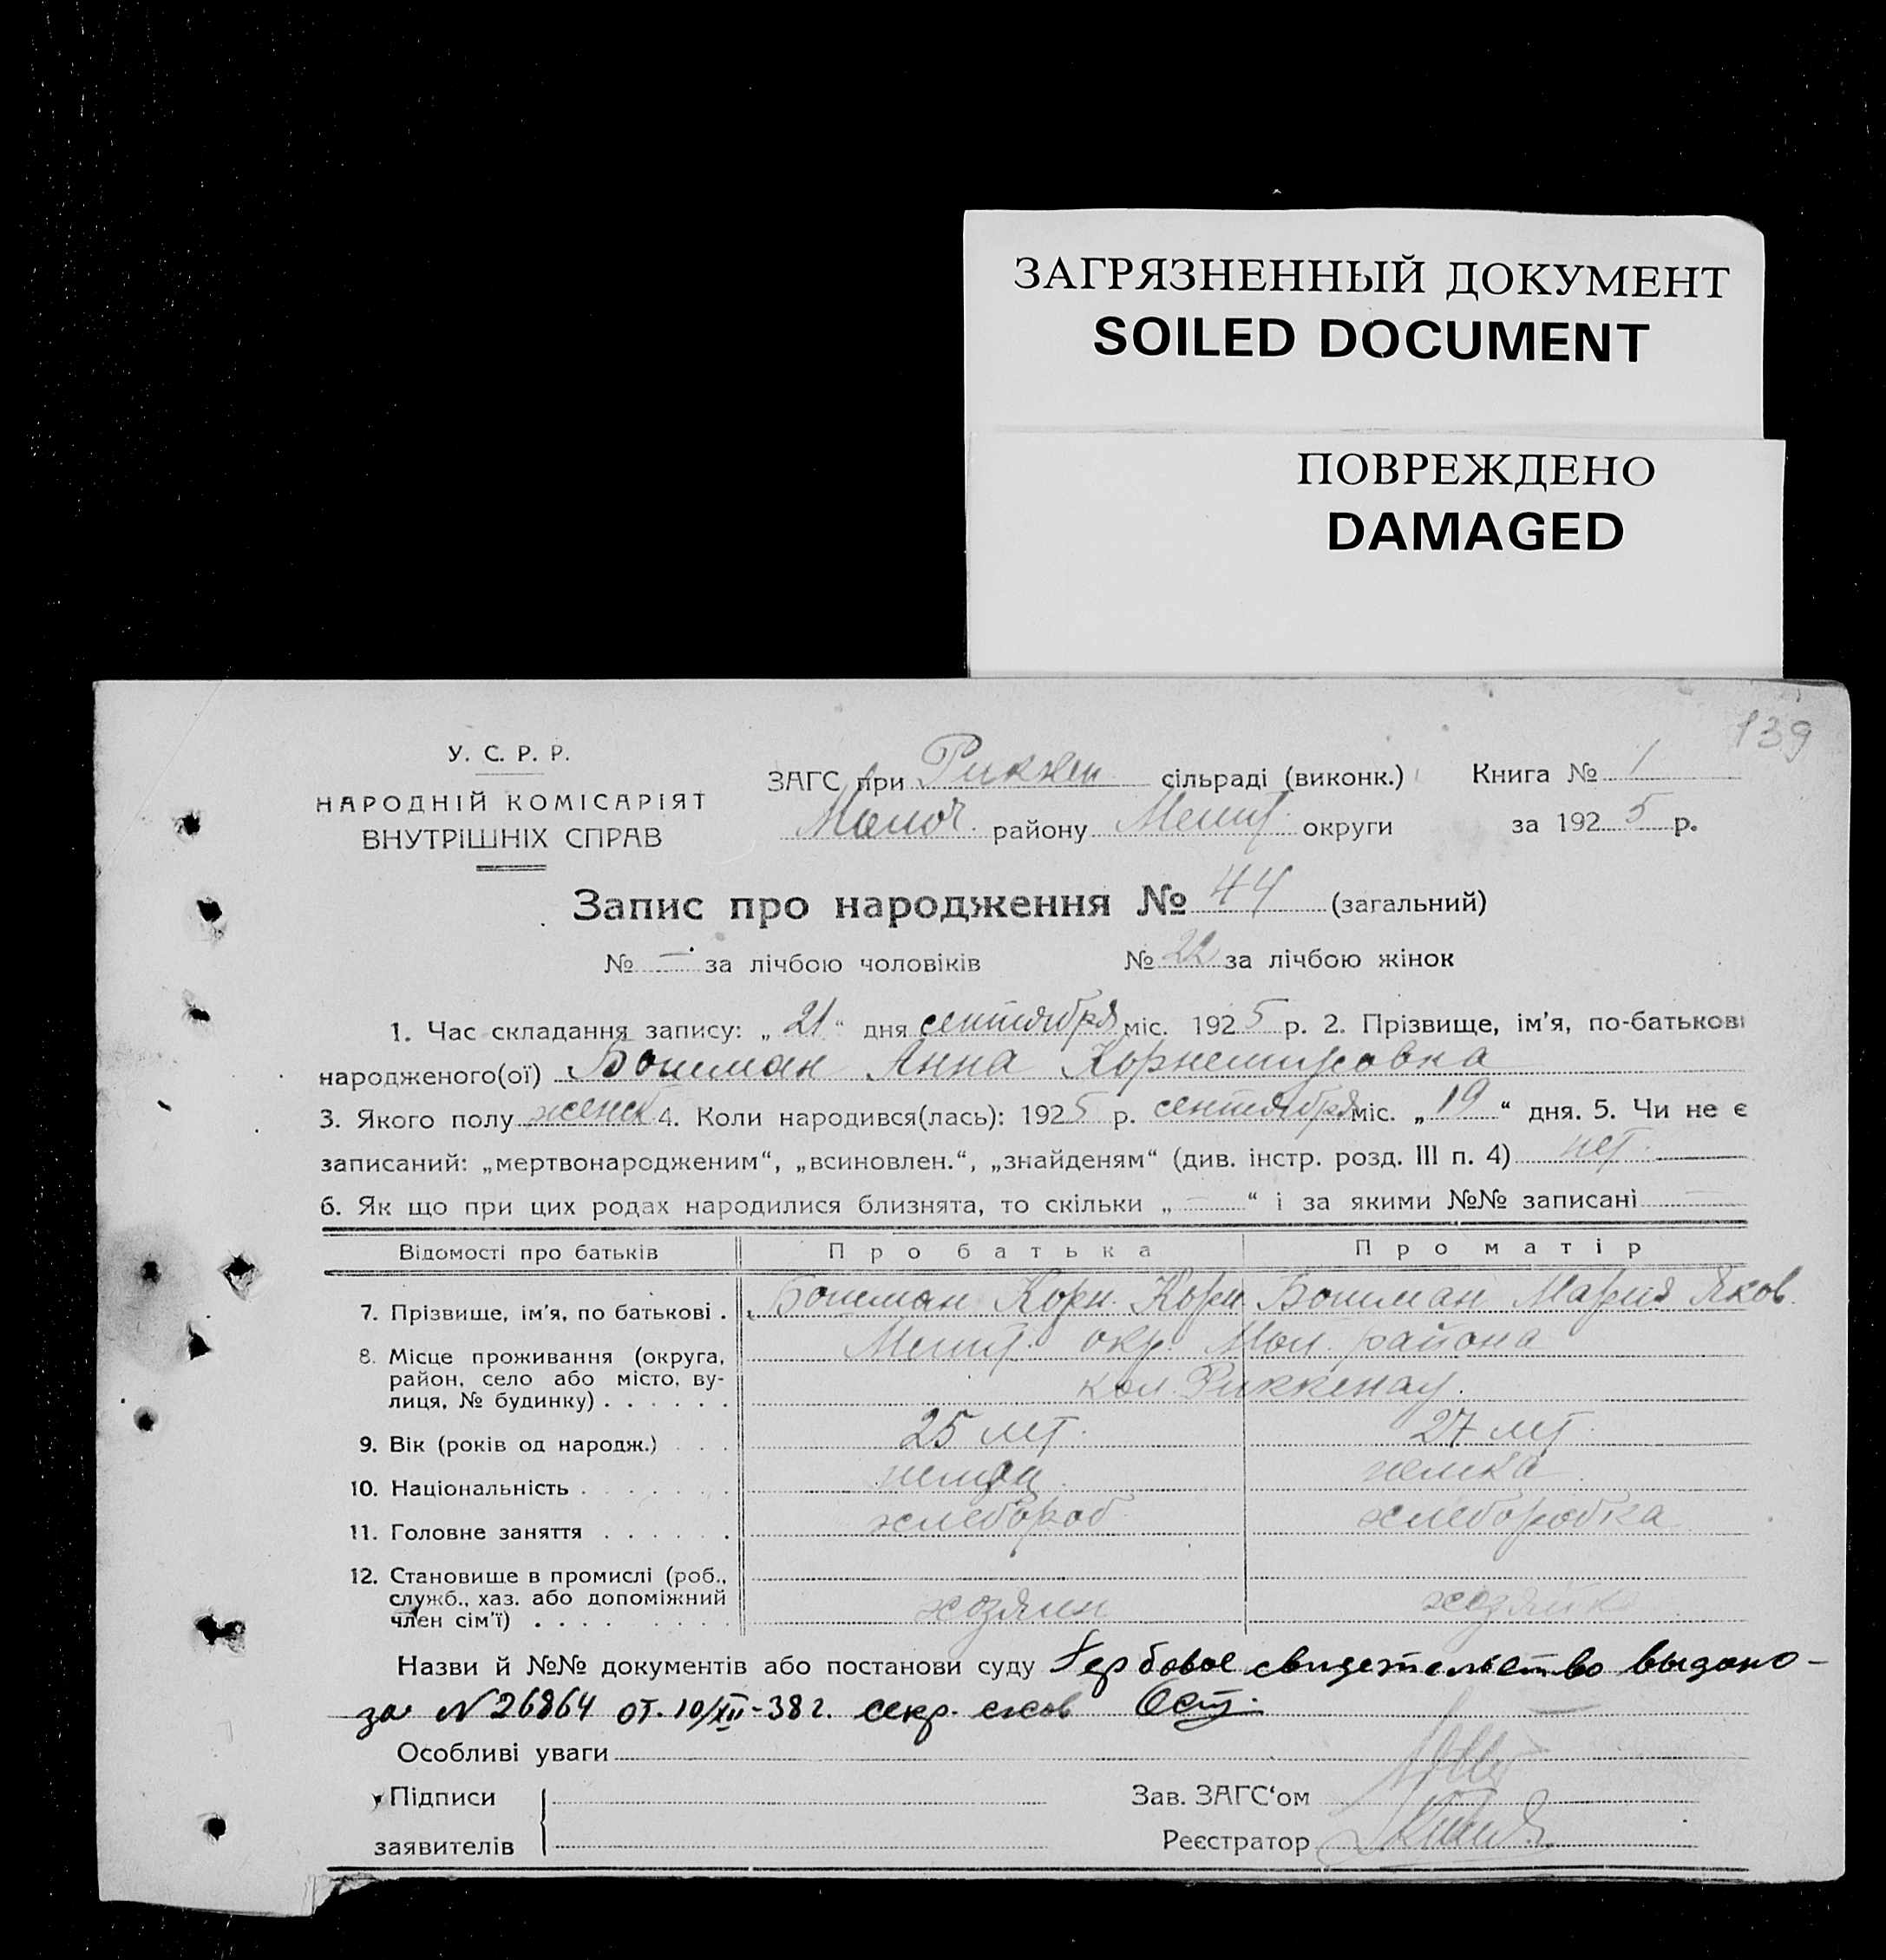 ЗАГРЯЗНЕННЫЙ ДОКУМЕНТ
SOILED DOCUMENT
ПОВРЕЖДЕНО
DAMAGED
139
У. С. Р. Р.
НАРОДНІЙ КОМІСАРІЯТ
ВНУТРІШНІХ СПРАВ
ЗАГС при Риккен сільраді (виконк.) Книга № 1
Молоч. району Мелит. округи за 1925 р.
Запис про народження № 44 (загальний)
№ — за лічбою чоловіків № 22 за лічбою жінок
1. Час складання запису: „21“ дня сентября міс. 1925 р. 2. Прізвище, ім'я, по-батькові
народженого(ої) Бошман Анна Корнелиусовна
3. Якого полу женск 4. Коли народився(лась): 1925 р. сентября міс. „19“ дня. 5. Чи не є
записаний: „мертвонародженим“, „всиновлен.“, „знайденям“ (див. інстр. розд. III п. 4) нет.
6. Як що при цих родах народилися близнята, то скільки „—“ і за якими №№ записані —
Відомості про батьків Про батька Про матір
7. Прізвище, ім'я, по батькові . Бошман Корн. Корн Бошман Мария Яков.
8. Місце проживання (округа, Мелит. окр. Мол. района
район, село або місто, ву-
лиця, № будинку) . . . . . . кол. Риккенау.
9. Вік (років од народж.) . . . 25 лет. 27 лет.
10. Національність . . . . . . . немец. немка.
11. Головне заняття . . . . . . хлебороб хлеборобка
12. Становище в промислі (роб.,
служб., хаз. або допоміжний
член сім'ї) . . . . . . . . хозяин хозяйка
Назви й №№ документів або постанови суду Гербовое свидетельство выдано-
за N 26864 от. 10/XII-38 г. секр.
Особливі уваги
Підписи
заявителів
Зав. ЗАГС‘ом
Реєстратор